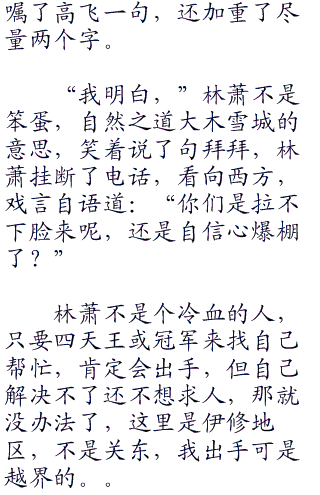 嘱了高飞一句，还加重了尽
量两个字。
“我明白，”林萧不是
笨蛋，自然之道大木雪城的
意思，笑着说了句拜拜，林
萧挂断了电话，看向西方，
戏言自语道：“你们是拉不
下脸来呢，还是自信心爆棚
了？”
林萧不是个冷血的人，
只要四天王或冠军来找自己
帮忙，肯定会出手，但自己
解决不了还不想求人，那就
没办法了，这里是伊修地
区，不是关东，我出手可是
越界的。。